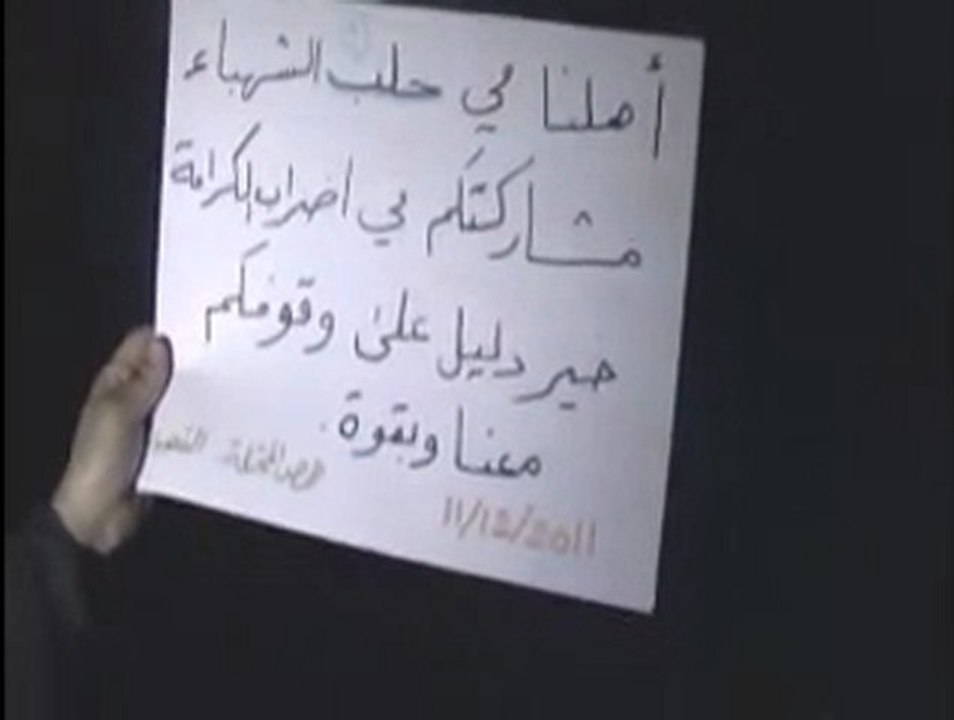 أهلنا في حلب الشهباء
مشاركتكم في اضراب الكرامة
خير دليل على وقوفكم
معنا وبقوة
11/12/2011